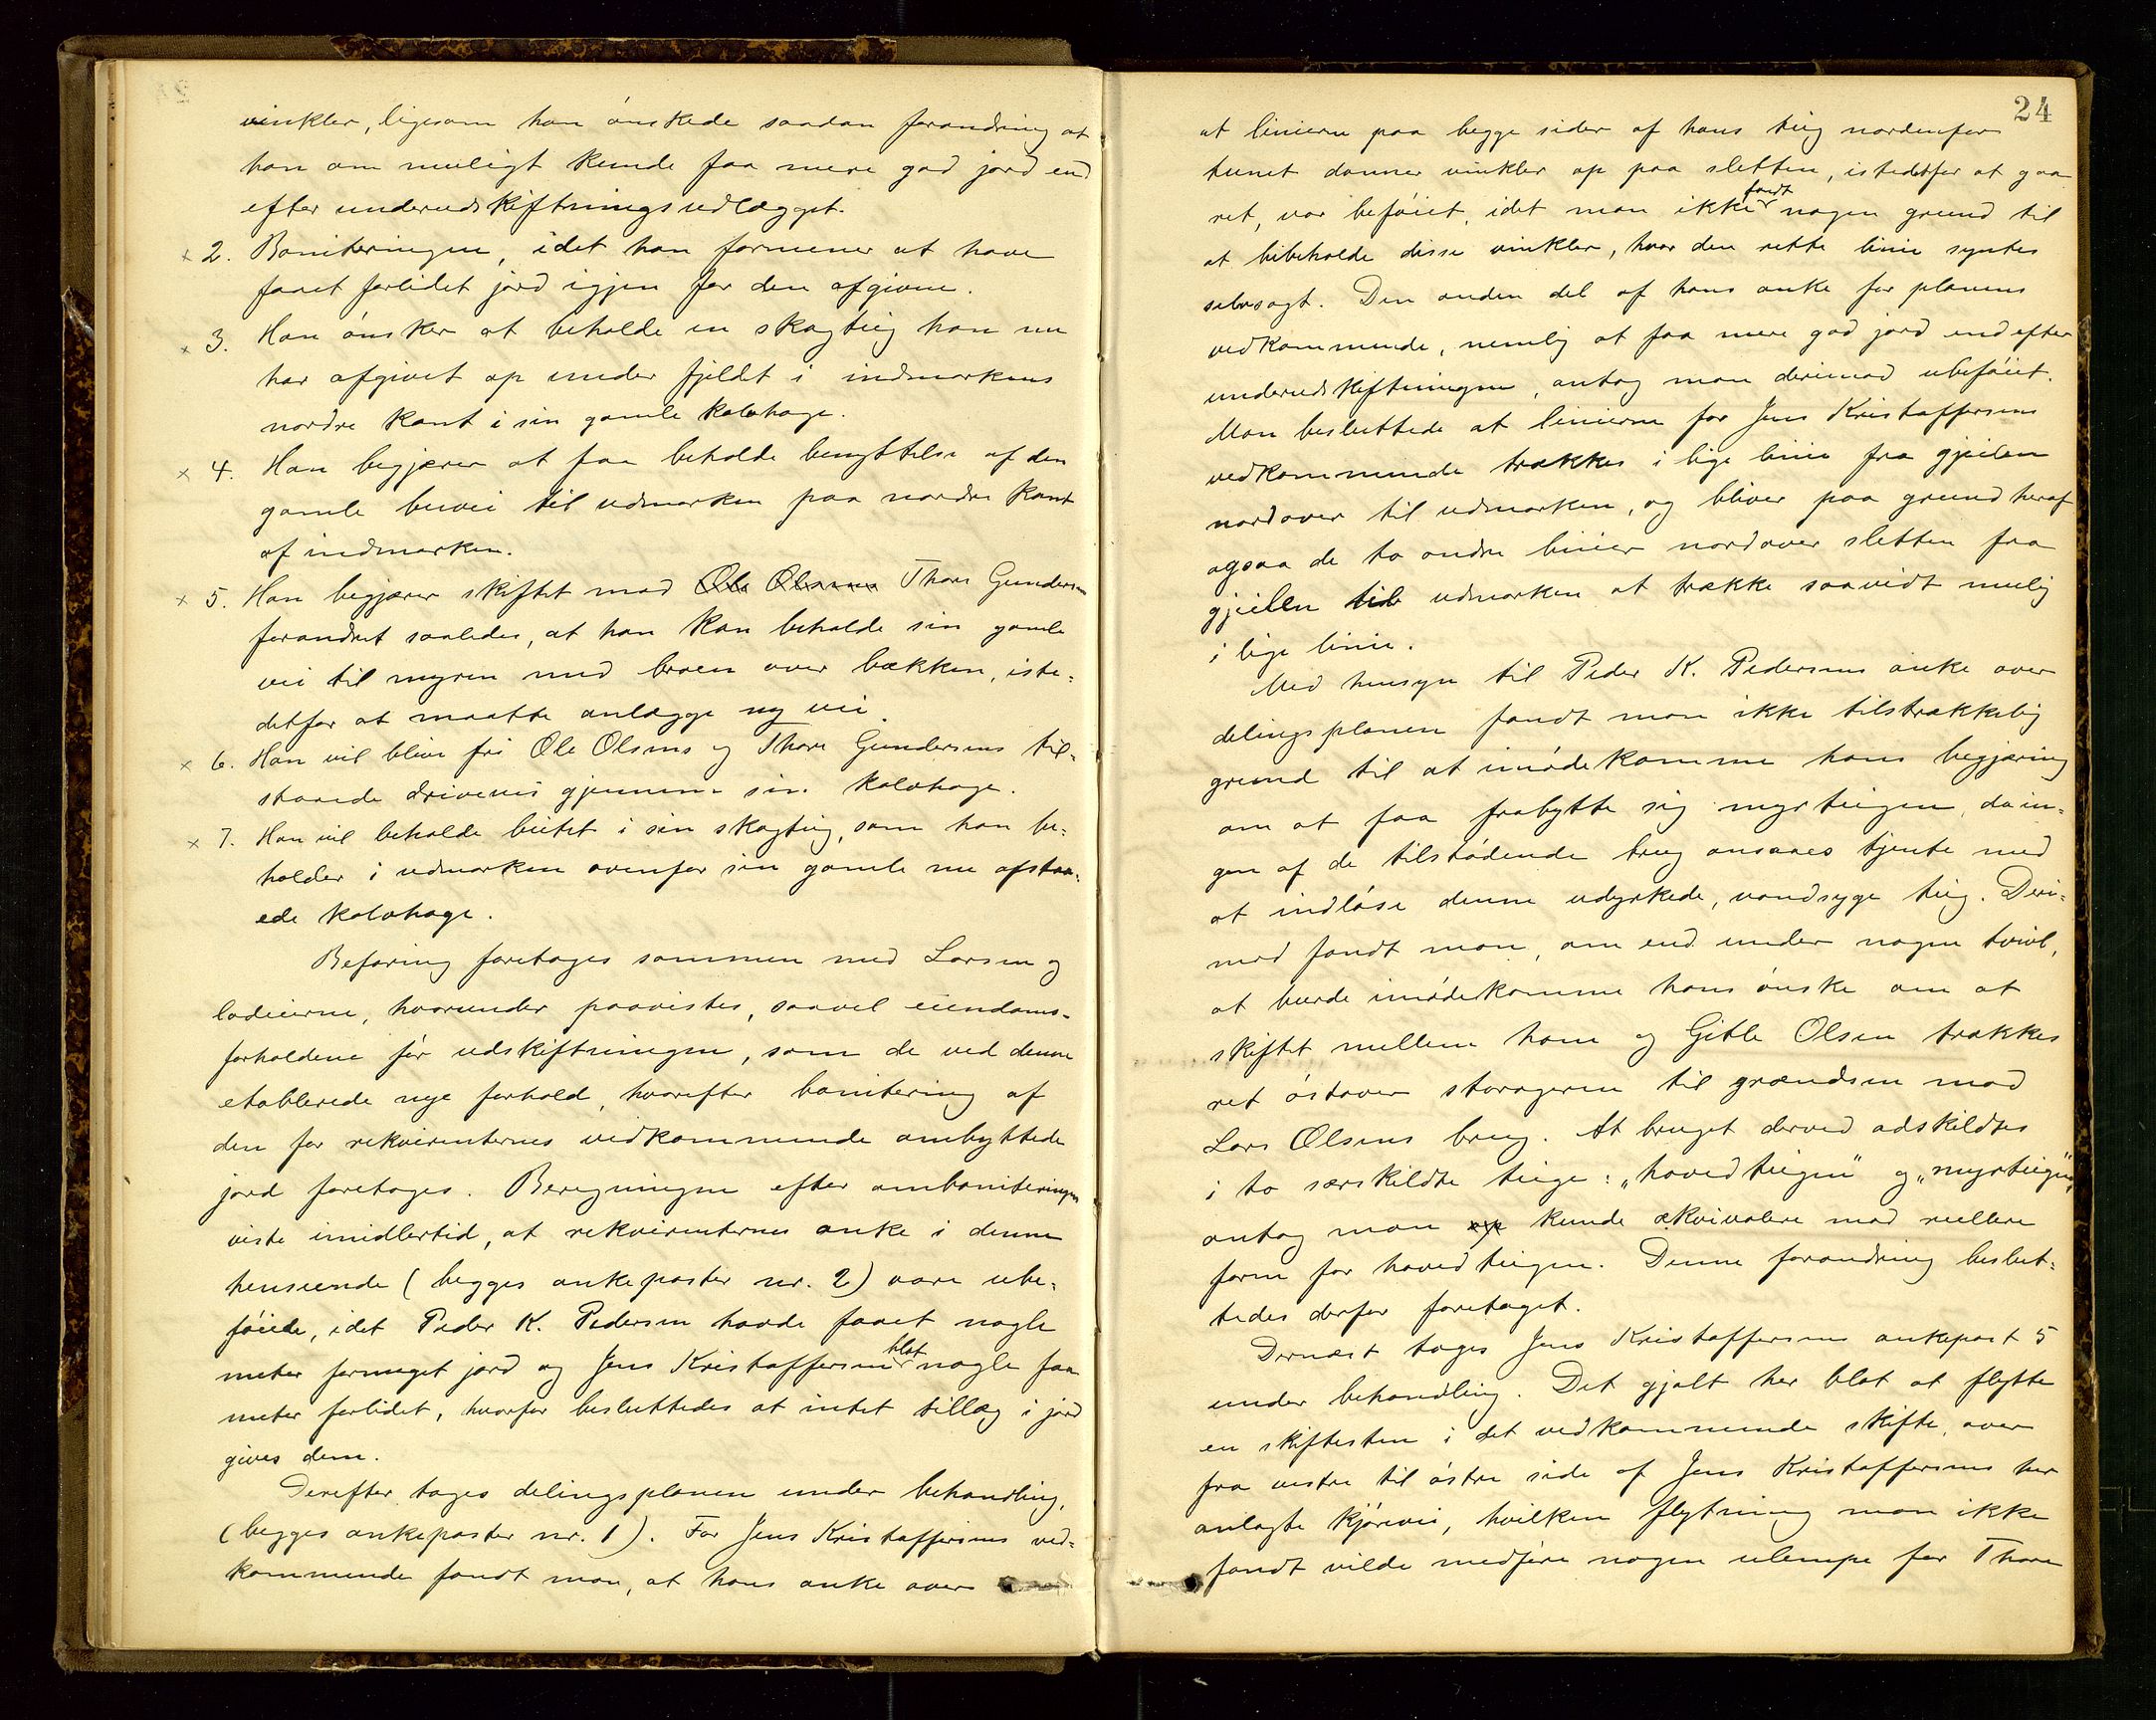 vinkler, ligesom han ønskede saadan forandring at
han om muligt kunde faa mere god jord end
efter underudskiftningsudlægget.
x 2. Boniteringen, idet han formener at have
faaet forlidet jord igjen for den afgivne.
x 3. Han ønsker at beholde en skogteig han nu
har afgivet op under fjeldet i indmarkens
nordre kant i sin gamle kalvhage.
x 4. Han begjærer at faa beholde benyttelse af den
gamle buvei til udmarken paa nordre kant
af indmarken.
x 5. Han begjærer skiftet mod Ole Olsens Thore Gundersen
forandret saaledes, at han kan beholde sin gamle
vei til myren med broen over bækken, iste-
detfor at maatte anlægge ny vei.
x 6. Han vil blive fri Ole Olsens og Thore Gundersens til-
staaede drivevei gjennem sin kalvhage.
x 7. Han vil beholde beitet i sin skogteig, som han be-
holder i udmarken ovenfor sin gamle nu afstaa-
ede kalvhage.
Befaring foretages sammen med Larsen og
lodeierne, hvorunder paavistes, saavel eiendoms-
forholdene før udskiftningen, som de ved denne
etablerede nye forhold, hvorefter bonitering af
den for rekvirenternes vedkommende ombyttede
jord foretages. Beregningen efter omboniteringen
viste imidlertid, at rekvirenternes anke i denne
henseende (begges ankeposter nr. 2) vare ube-
føiede, idet Peder K. Pedersen havde faaet nogle
meter formeget jord og Jens Kristoffersen blot nogle faa
meter forlidet, hvorfor besluttedes at intet tillæg i jord
gives dem.
Derefter tages delingsplanen under behandling,
(begges ankeposter nr. 1). For Jens Kristoffersens ved-
kommende fandt man, at hans anke over
24
at linierne paa begge sider af hans teig nordenfor
tunet danner vinkler op paa sletten, istedetfor at gaa
ret, var beføiet, idet man ikke fandt nogen grund til
at bibeholde disse vinkler, hvor den rette linie syntes
selvsagt. Den anden del af hans anke for planens
vedkommende, nemlig at faa mere god jord end efter
underudskiftningen, antog man derimod ubeføiet.
Man besluttede at linierne for Jens Kristoffersens
vedkommende trækkes i lige linie fra gjeilen
nordover til udmarken, og bliver paa grund heraf
ogsaa de to andre linier nordover sletten fra
gjeilen til udmarken at trække saavidt mulig
i lige linie.
Med hensyn til Peder K. Pedersens anke over
delingsplanen fandt man ikke tilstrækkelig
grund til at imødekomme hans begjæring
om at faa frabytte sig myrteigen, da in-
gen af de tilstødende brug ansaaes tjente med
at indløse denne udyrkede, vandsyge teig. Deri-
mod fandt man, om end under nogen tvivl,
at burde imødekomme hans ønske om at
skiftet mellem ham og Gitle Olsen trækkes
ret østover storageren til grændsen mod
Lars Olsens brug. At bruget derved adskildtes
i to særskildte teige: „hovedteigen“ og „myrteigen“,
antog man op kunde ækvivalere mod reellere
form for hovedteigen. Denne forandring beslut-
tedes derfor foretaget.
Dernæst toges Jens Kristoffersens ankepost 5
under behandling. Det gjalt her blot at flytte
en skiftesten i det vedkommende skifte, over
fra vestre til østre side af Jens Kristoffersens her
anlagte kjørevei, hvilken flytning man ikke
fandt vilde medføre nogen ulempe for Thore